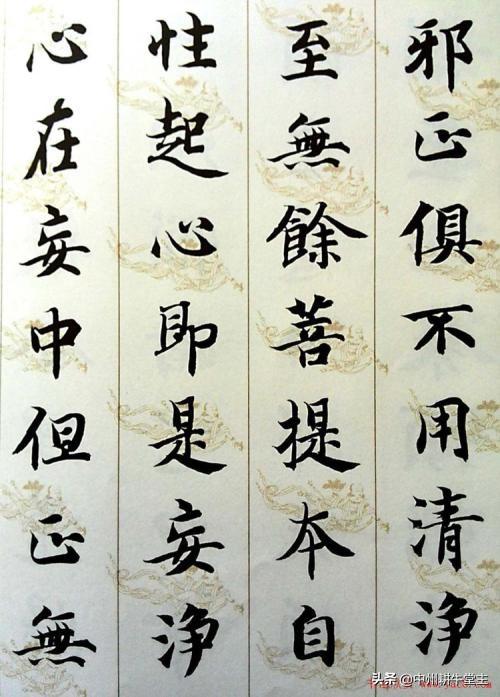 邪正俱不用清淨
至無餘菩提本自
性起心即是妄淨
心在妄中但正無
头条 @中州耕牛堂主